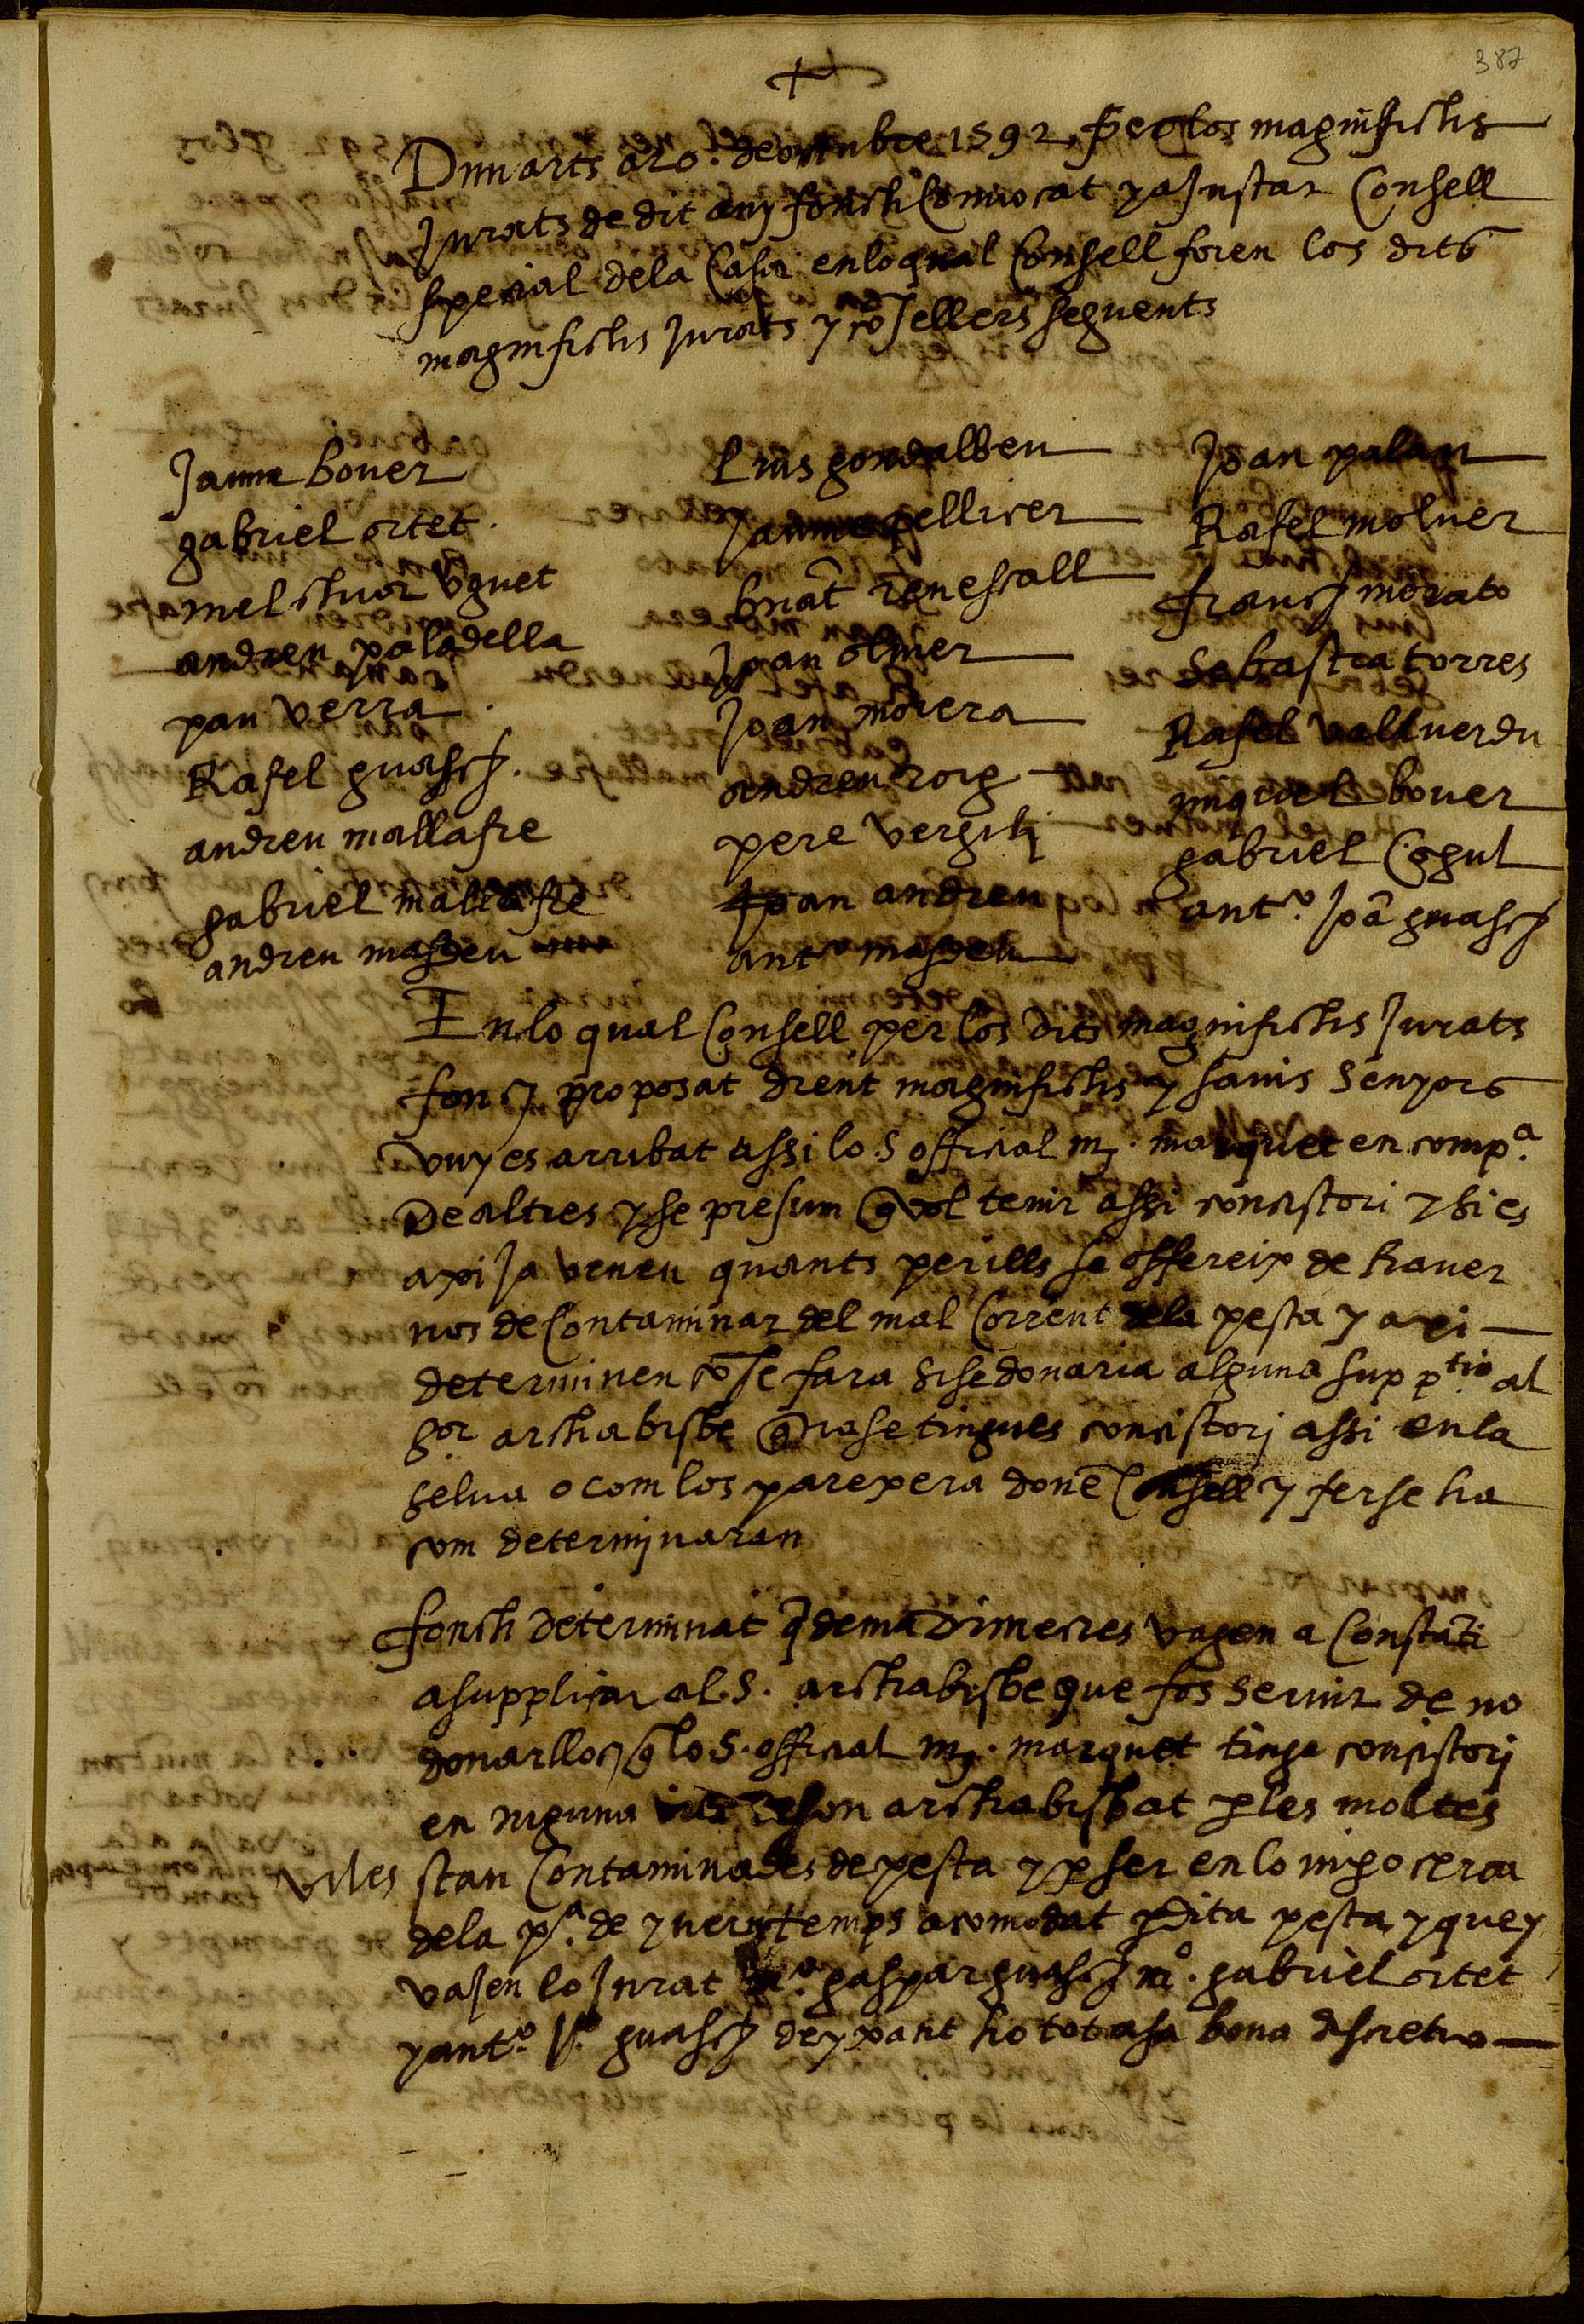 387
Dimarts a 20. de octubre 1592 per los magnifichs
Jurats de dit any fonch Convocat y aJustar Consell
special dela Casa en lo qual Consell foren los dits
magnifichs Jurats y cõsellers seguents
Jaume bover
gabriel ortet.
melchior Uguet
andreu paladella
pau verra.
Rafel guasch.
andreu mallafre
gabriel mallafre
andreu masdeu
Luis gondalbeu
Jaume pellicer
bnat renescall
Joan oliver
Joan morera
andreu roig
pere vergili
Joan andreu
anto masdeu
Joan palau
Rafel moluer
francj morato
Sebastia torres
Rafel vallverdu
miquel bover
gabriel Cogul
ant.o Joã guasch
En lo qual Consell per los dits magnifichs Jurats
fonch proposat dient magnifichs y savis Senyors
vuy es arribat assi lo .S official mj. marquet en comp.a
De altres y se presum q vol tenir assi concistori y si es
axi Ja veneu quants perills se offereix de haver
nos de Contaminar del mal Corrent dela pesta y axi
determinen cõ se fara si se donaria alguna supp.tio al
Sor archabisbe q no se tingues concistorj assi en la
selva o com los parexera donẽ Consell y fer se ha
com determjnaran
fonch determinat q dema Dimecres vagen a Constãti
a supplicar al .S. archabisbe que fos servir de no
donar lloch q lo .S. official mj. marquet tinga concistorj
en ninguna de son archabisbat p les moltes
viles stan Contaminades de pesta y p ser en lo
dela de y vern temps acomodat p dita pesta y que y
vaJen lo Jurat gaspar guasch m.o gabriel ortet
y ant.o J.o guasch deyxant ho tot a sa bona discretio